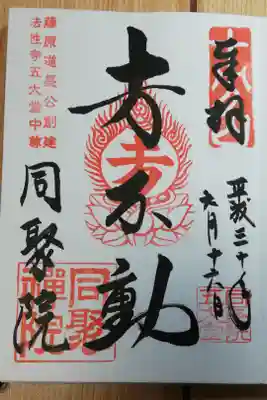 奉拝
平成三十年
六月十六日
不動
藤原道長公創建
法性寺五大堂中尊
同聚院
同聚
禪院